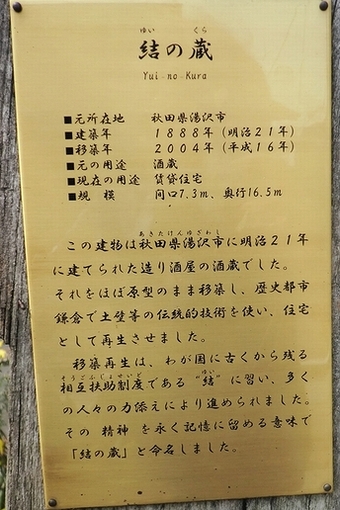 ゆい くら
結の蔵
Yui-no-Kura
■元所在地 秋田県湯沢市
■建築年 1888年（明治21年）
■移築年 2004年（平成16年）
■元の用途 酒蔵
■現在の用途 賃貸住宅
■規 模 間口7.3m、奥行16.5m
あきたけんゆざわし
この建物は秋田県湯沢市に明治21年
に建てられた造り酒屋の酒蔵でした。
それをほぼ原型のまま移築し、歴史都市
鎌倉で土壁等の伝統的技術を使い、住宅
として再生させました。
移築再生は、わが国に古くから残る
そうごふじょせいど ゆい
相互扶助制度である"結"に習い、多く
の人々の力添えにより進められました。
その 精神 を永く記憶に留める意味で
「結の蔵」と命名しました。